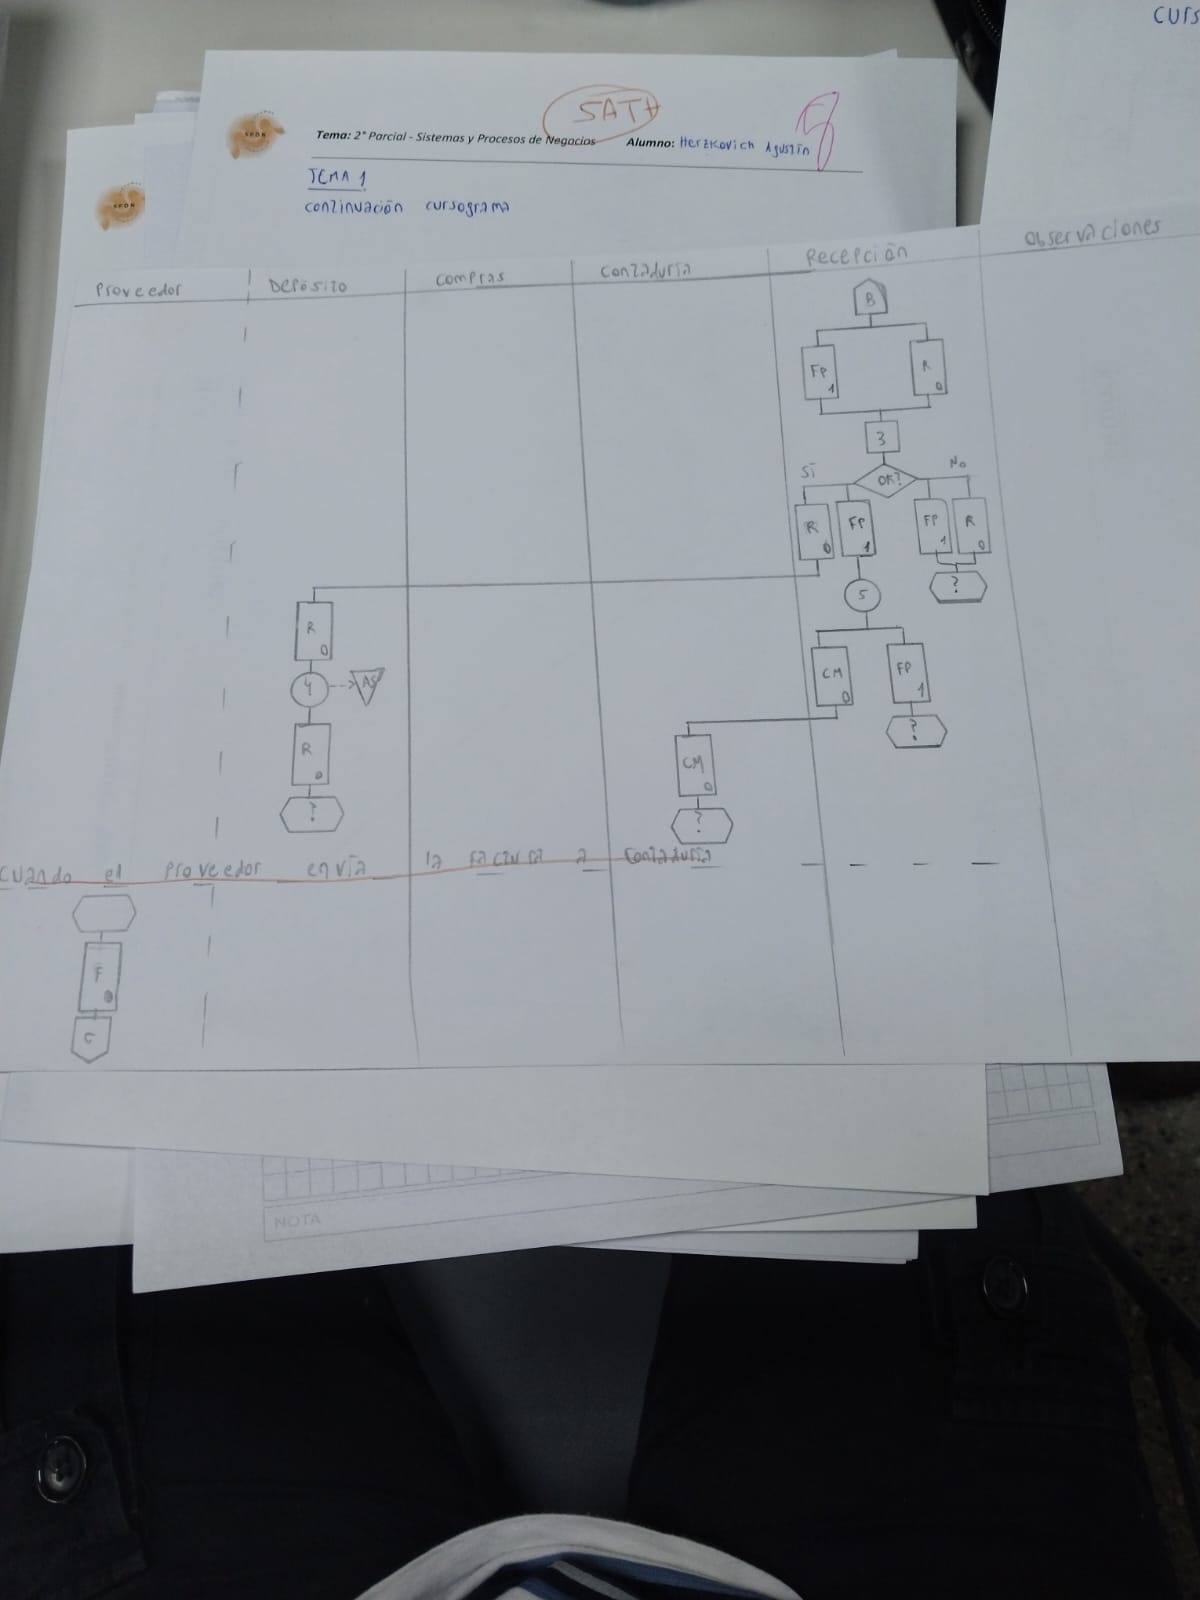 CURS
SATH
SPDN
Tema: 2° Parcial - Sistemas y Procesos de Negocios
Alumno: Herzkovich Agustín
8
TEMA 1
continuación cursograma
SPDN
Proveedor
Depósito
compras
contaduría
Recepción
Observaciones
B
FP
1
R
0
3
Sí
OK?
No
R
0
FP
1
FP
1
R
0
?
5
R
0
CM
0
FP
1
4
AS
?
R
0
CM
0
?
?
Cuando el proveedor envía la factura a contaduría
F
0
C
NOTA